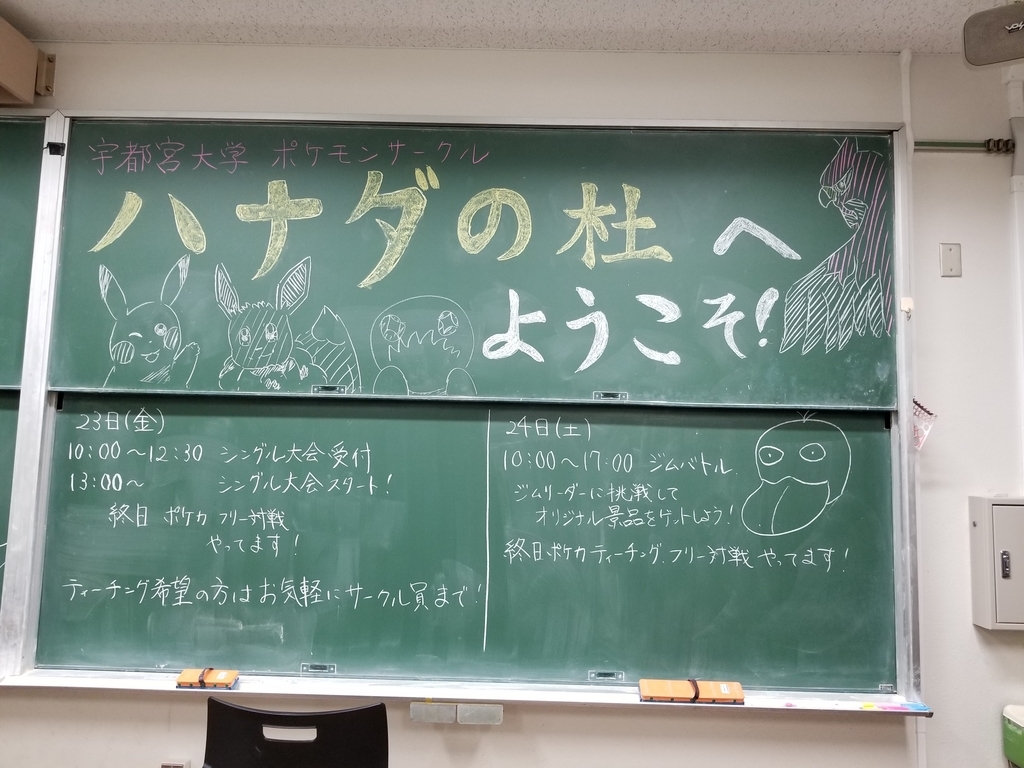 宇都宮大学 ポケモンサークル
ハナダの杜へ
ようこそ!
23日(金)
10:00～12:30 シングル大会受付
13:00～ シングル大会スタート!
終日 ポケカ フリー対戦
やってます!
ティーチング希望の方はお気軽にサークル員まで!
24日(土)
10:00～17:00 ジムバトル
ジムリーダーに挑戦して
オリジナル景品をゲットしよう!
終日ポケカティーチング、フリー対戦 やってます!